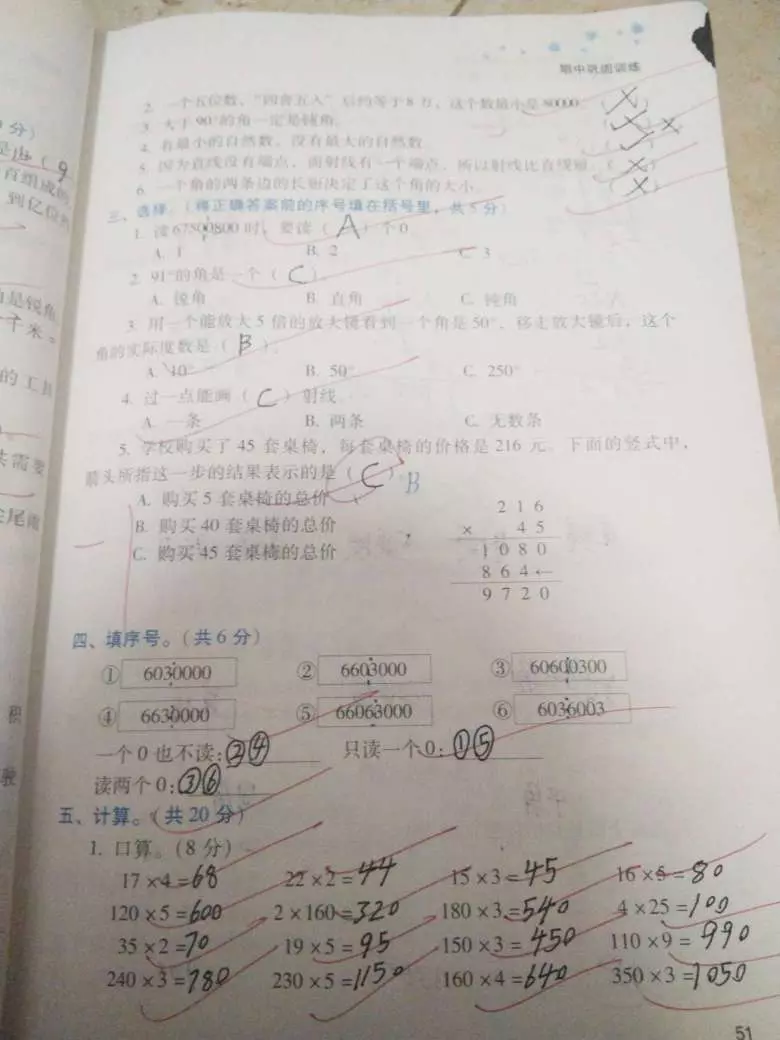 期中巩固训练
2. 一个五位数，“四舍五入”后约等于8万，这个数最小是80000。(X)
3. 大于90°的角一定是钝角。(X) X
4. 有最小的自然数，没有最大的自然数。(✓)
5. 因为直线没有端点，而射线有一个端点，所以射线比直线短。(X)
6. 一个角的两条边的长短决定了这个角的大小。(X)
三、选择。(将正确答案前的序号填在括号里，共5分)
1. 读67500800时，要读(A)个0
A. 1 B. 2 C. 3
2. 91°的角是一个(C)
A. 锐角 B. 直角 C. 钝角
3. 用一个能放大5倍的放大镜看到一个角是50°，移走放大镜后，这个
角的实际度数是(B)。
A. 10° B. 50° C. 250°
4. 过一点能画(C)射线
A. 一条 B. 两条 C. 无数条
5. 学校购买了45套桌椅，每套桌椅的价格是216元。下面的竖式中，
箭头所指这一步的结果表示的是(C) B
A. 购买5套桌椅的总价
B. 购买40套桌椅的总价
C. 购买45套桌椅的总价
2 1 6
× 4 5
1 0 8 0
8 6 4←
9 7 2 0
四、填序号。(共6分)
① 6030000 ② 6603000 ③ 60600300
④ 6630000 ⑤ 66063000 ⑥ 6036003
一个0也不读:②④ 只读一个0:①⑤
读两个0:③⑥
五、计算。(共20分)
1. 口算。(8分)
17×4=68 22×2=44 15×3=45 16×5=80
120×5=600 2×160=320 180×3=540 4×25=100
35×2=70 19×5=95 150×3=450 110×9=990
240×3=780 230×5=1150 160×4=640 350×3=1050
51
分)
百组成的
到亿位
是锐角
千米=
的工具
共需要
积